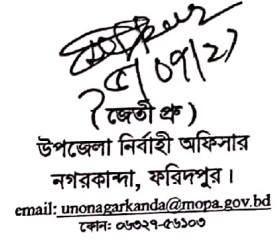 (জেতী প্রু)
উপজেলা নির্বাহী অফিসার
নগরকান্দা, ফরিদপুর।
email: unonagarkanda@mopa.gov.bd
ফোন: ০৬৩২৭-৫৬১০৩